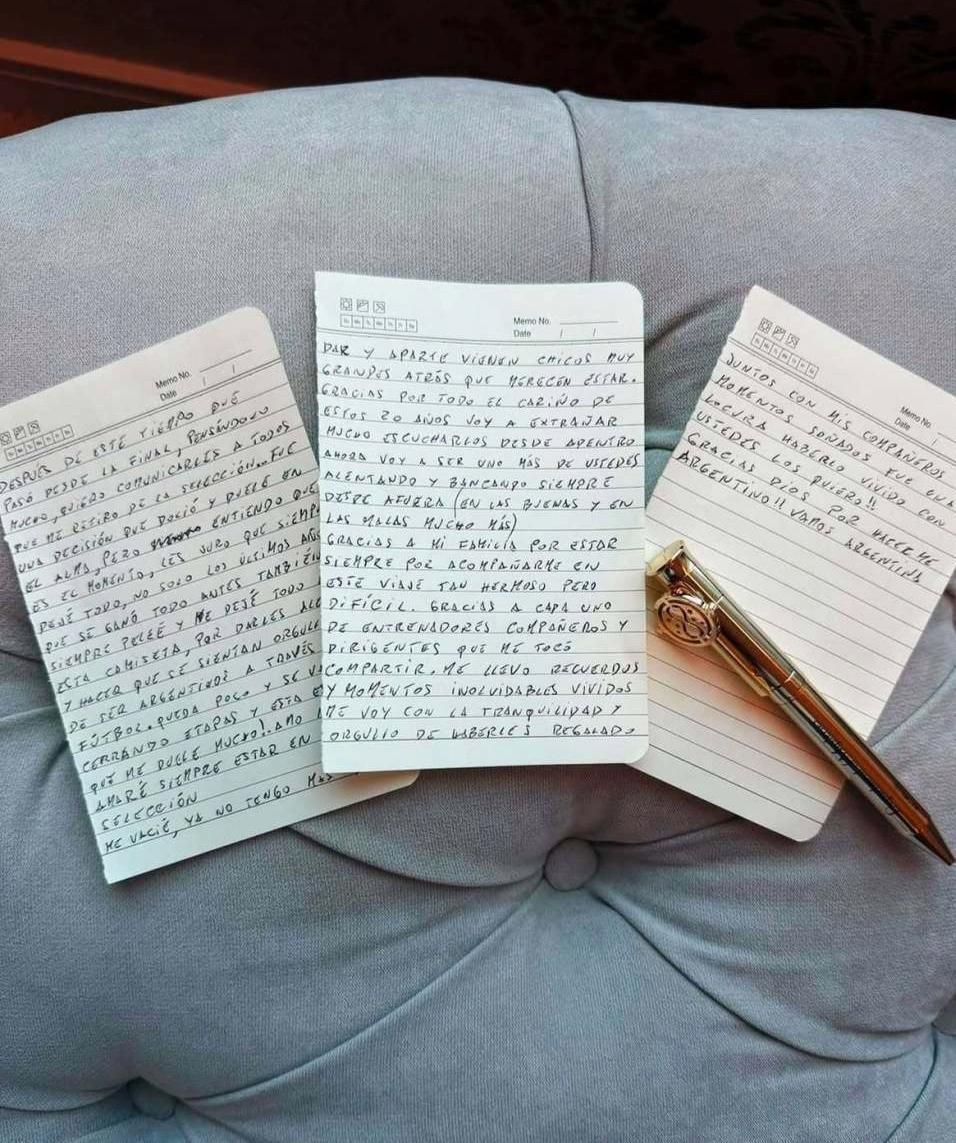 Memo No.
Date / /
DESPUÉS DE ESTE TIEMPO QUE
PASÓ DESDE LA FINAL, PENSÁNDOLO
MUCHO, QUIERO COMUNICARLES A TODOS
QUE ME RETIRO DE LA SELECCIÓN... FUE
UNA DECISIÓN QUE DOLIÓ Y DUELE EN
EL ALMA, PERO ENTIENDO QUE
ES EL MOMENTO, LES JURO QUE SIEMP
DEJÉ TODO, NO SOLO LOS ÚLTIMOS AÑOS
QUE SE GANÓ TODO ANTES TAMBIÉN
SIEMPRE PELEÉ Y ME DEJÉ TODO
ESTA CAMISETA, POR DARLES ALE
Y HACER QUE SE SIENTAN ORGULL
DE SER ARGENTINOS A TRAVÉS
FÚTBOL. QUEDA POCO Y SE VA
CERRANDO ETAPAS Y ESTA E
QUE ME DUELE MUCHO!. AMO
AMARÉ SIEMPRE ESTAR EN
SELECCIÓN
ME VACIÉ, YA NO TENGO MÁS
Memo No.
Date / /
DAR Y APARTE VIENEN CHICOS MUY
GRANDES ATRÁS QUE MERECEN ESTAR.
GRACIAS POR TODO EL CARIÑO DE
ESTOS 20 AÑOS VOY A EXTRAÑAR
MUCHO ESCUCHARLOS DESDE ADENTRO
AHORA VOY A SER UNO MÁS DE USTEDES
ALENTANDO Y BANCANDO SIEMPRE
DESDE AFUERA (EN LAS BUENAS Y EN
LAS MALAS MUCHO MÁS)
GRACIAS A MI FAMILIA POR ESTAR
SIEMPRE POR ACOMPAÑARME EN
ESTE VIAJE TAN HERMOSO PERO
DIFÍCIL. GRACIAS A CADA UNO
DE ENTRENADORES COMPAÑEROS Y
DIRIGENTES QUE ME TOCÓ
COMPARTIR. ME LLEVO RECUERDOS
Y MOMENTOS INOLVIDABLES VIVIDOS
ME VOY CON LA TRANQUILIDAD Y
ORGULLO DE HABERLES REGALADO
Memo No.
Date /
JUNTOS CON MIS COMPAÑEROS
MOMENTOS SOÑADOS FUE UNA
LOCURA HABERLO VIVIDO CON
USTEDES LOS QUIERO!!
GRACIAS DIOS POR HACERME
ARGENTINO!! VAMOS ARGENTINA